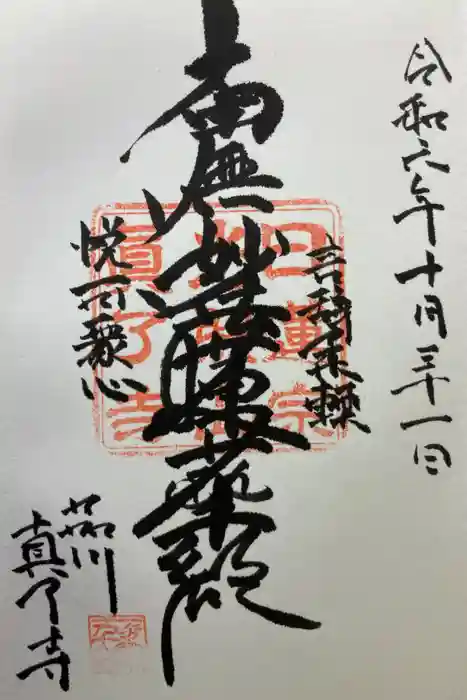 令和六年十月三十一日
言辞柔軟
南無妙法蓮華経
悦可衆心
品川
真了寺
日蓮宗
真了寺